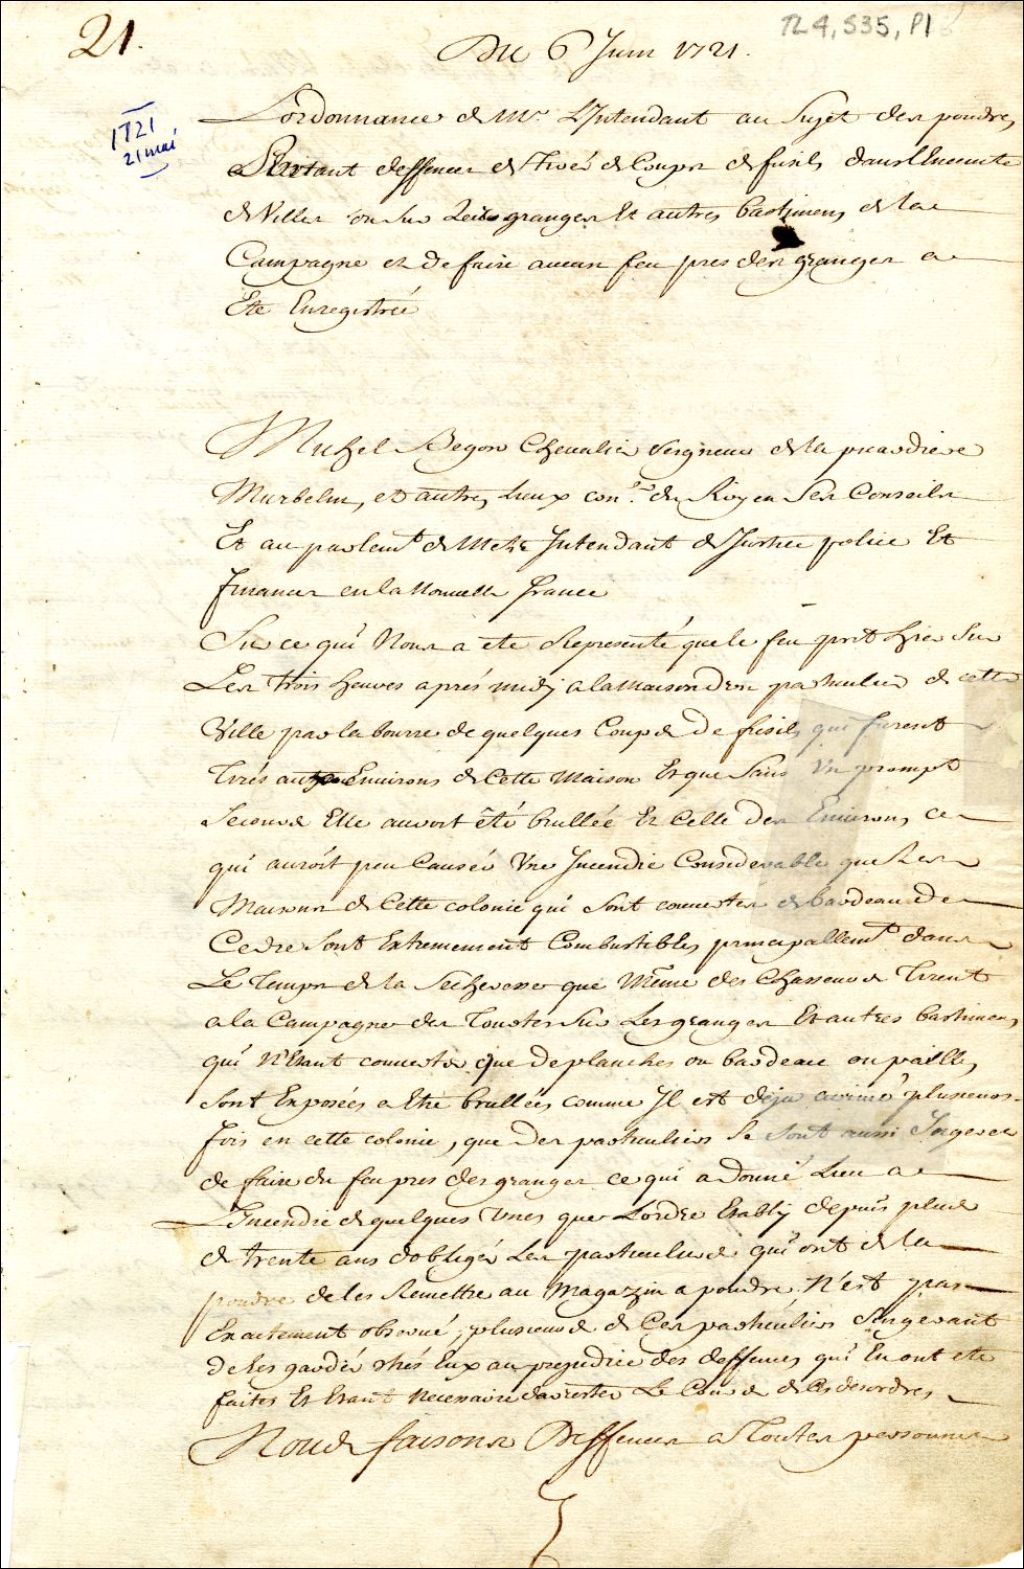 21.
TL4, S35, P1
Du 6 Juin 1721.
1721
21 mai
L'ordonnance de Mr. L'Intendant au Sujet des poudres
Portant deffences de Tirer de Coups de fusils dans l'Enceinte
de Villes ou Sur Leurs granges Et autres bastimens de la
Campagne et de faire aucun feu pres des granges a
Ete Enregistrée
Michel Begon Chevalier Seigneur de la picardiere
Murbelin, et autres Lieux conr. du Roy en Ses Conseils
Et au parlemt. de Metz Intendant de Justice police Et
finances en la Nouvelle france
Sur ce qui Nous a ete Representé que le feu prit hier Sur
Les trois heures aprés midy a la Maison d'un particulier de cette
Ville par la bourre de quelques Coups de fusils qui furent
tirés aux Environs de Cette Maison Et que Sans un prompt
Secours Elle auroit êté brullée Et Celle des Environs, ce
qui auroit peu Causer Une Incendie Considerable que Les
Maisons de Cette colonie qui Sont couvertes de bardeau de
Cedre Sont Extremement Combustibles, principallemt. dans
Le Temps de la Secheresse que Même des Chasseurs Tirent
a la Campagne des Tourtes Sur Les granges Et autres bastimens,
qui N'Etant couvertes que de planches ou bardeau ou paille,
Sont Exposées a Etre brullées comme Il est déja arrivé plusieurs
fois en cette colonie, que des particuliers Se Sont aussi Ingerer
de faire du feu pres des granges ce qui a donné Lieu a
L'Incendie de quelques Unes que L'ordre Etably depuis plus
de trente ans d'obliger Les particuliers qui ont de la
poudre de les Remettre au Magazin a poudre, N'est pas
Exactement observé, plusieurs de Ces particuliers S'ingerant
de les garder chés Eux au prejudice des deffences qui En ont ete
faites Et Etant Necessaire d'arrester Le Cours de Ces desordres,
Nous faisons Deffences a Toutes personnes